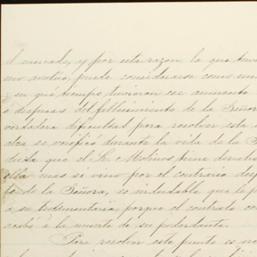 el mercado, y por esta razon la que tuvo
mo motivo, puede considerarse como una
en qué tiempo tuvieron ese aumento
ó despues del fallecimiento de la Señora
verdadera dificultad para resolver esta
dra se verificó durante la vida de la S
dicta que el Sr. Molinos tiene derecho
ella mas si vino por el contrario desp
to de la Señora, es indudable que le p
á su testamentaria, porque el contrato con
cesó á la muerte de su poderdante.
Para resolver este punto es ne